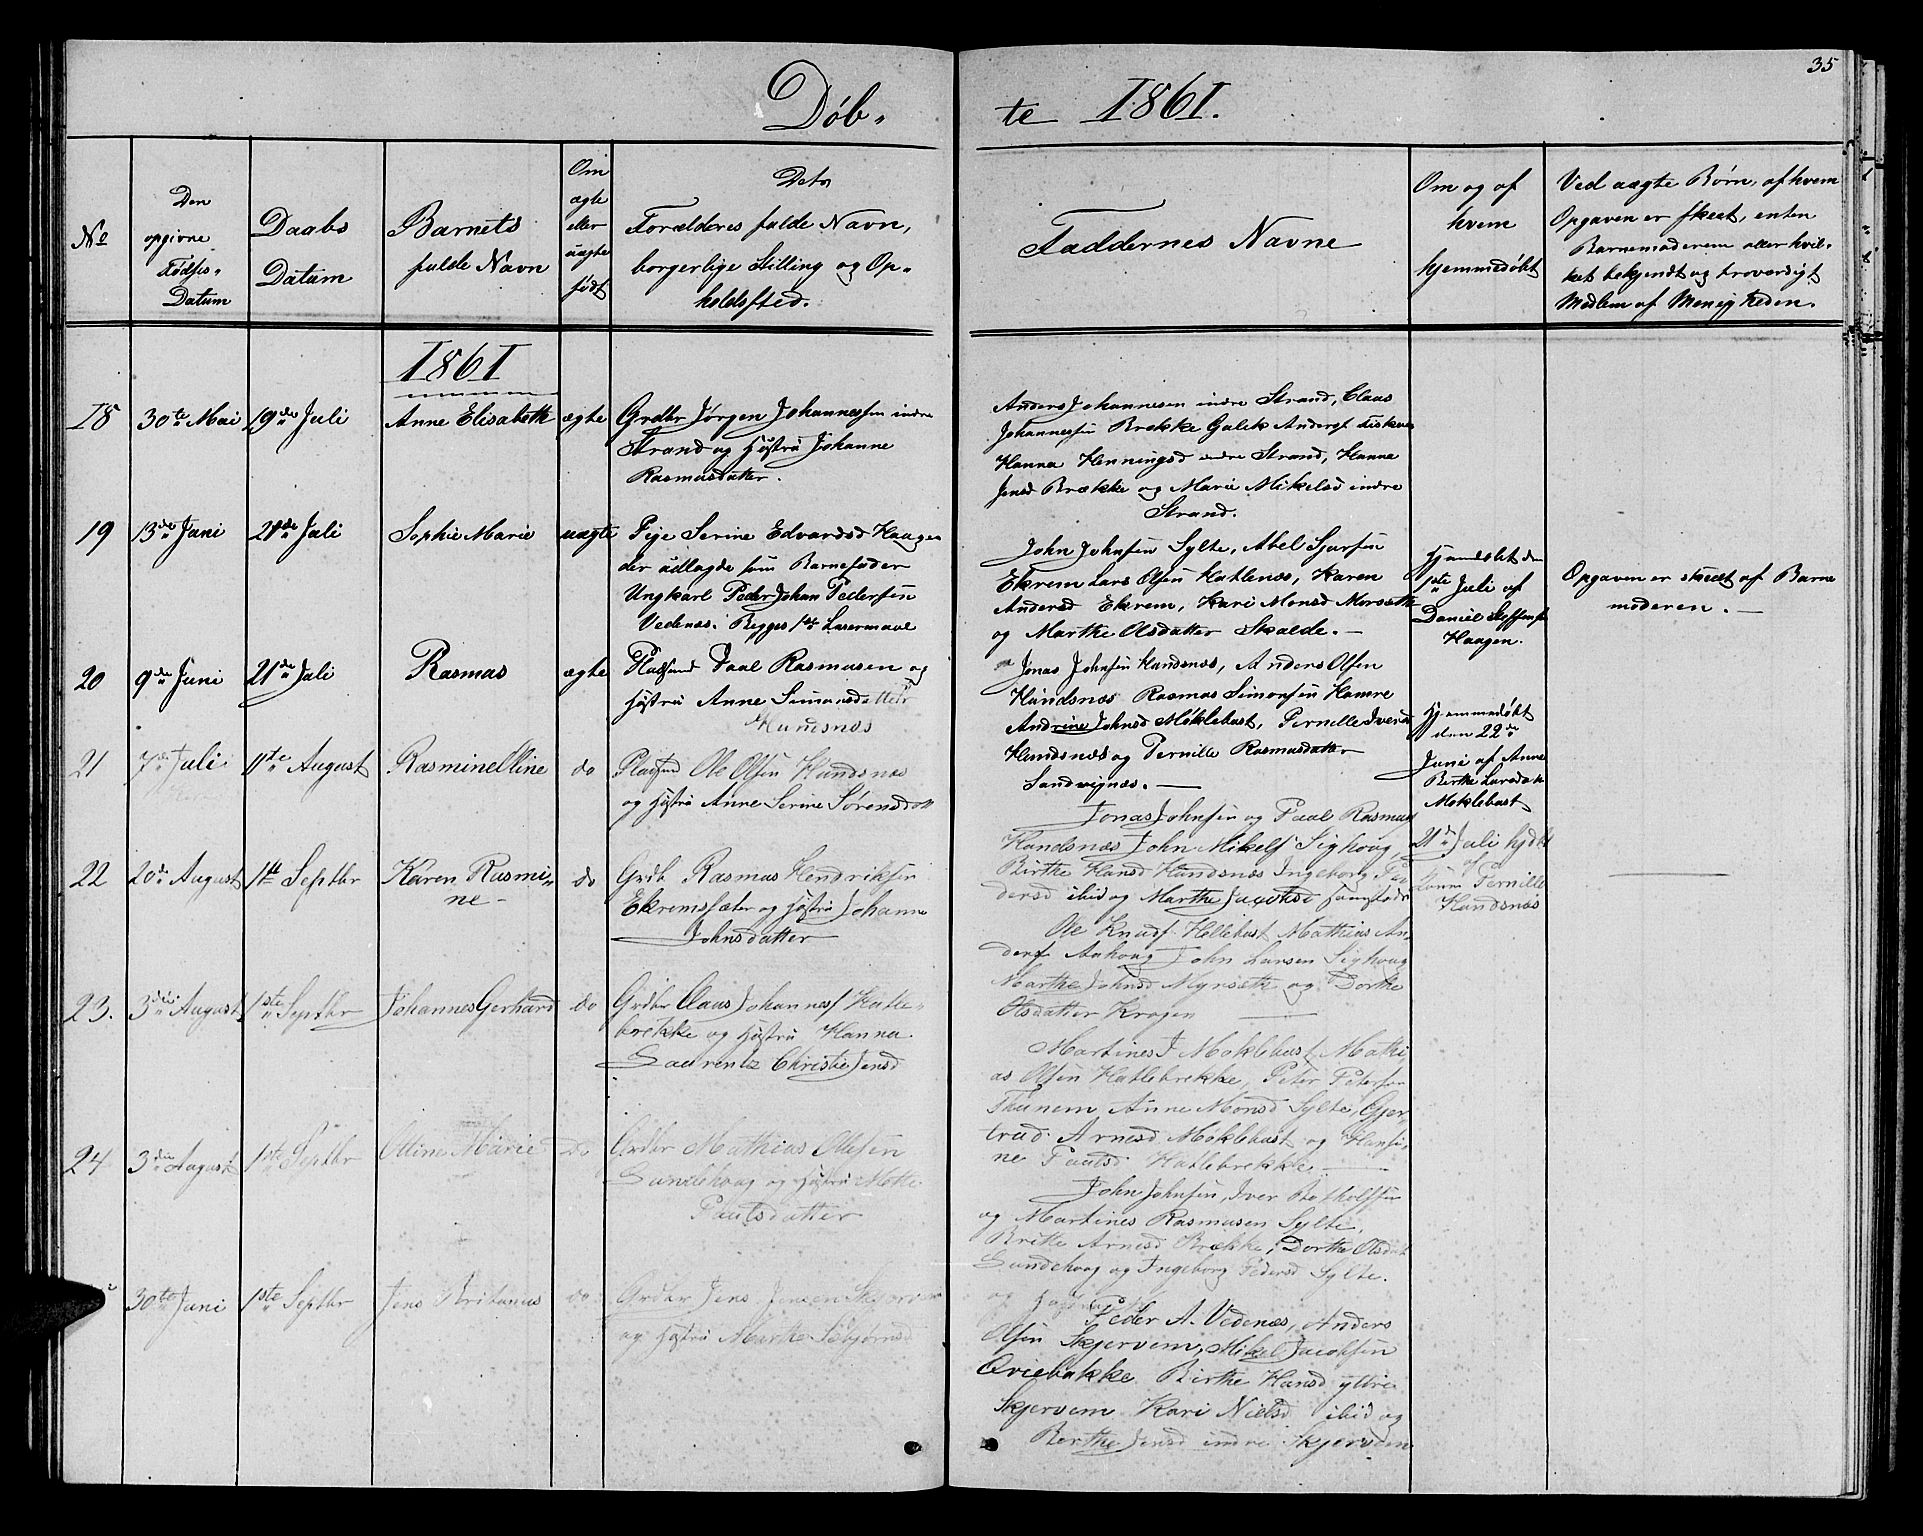 35
Döb-
te 1861.
No
Den
opgivne
Födsls-
Datum
Daabs
Datum
Barnets
fulde Navn
Om
ægte
eller
uægte
født
Dets
Forældres fulde Navn,
borgerlige Stilling og Op-
holdssted.
Faddernes Navne
Om og af
hvem
hjemmedøbt
Ved uægte Børn, af hvem
Opgaven er skeet, enten
Barnemoderem eller hvil-
ket bekjendt og troværdigt
Medlem af Menigheden.
1861
18 30te Mai 19de Juli Anne Elisabeth ægte Grdbr Jørgen Johannessen indre
Strand og Hustru Johanne
Rasmusdatter.
Anders Johannesen indre Strand, Claas
Johannessen Brekke Galek Anders
Hanna Henningsd indre Strand, Hanna
Jensd Brække og Marie Mikelsd indre
Strand.
19 13de Juni 21de Juli Sophie Marie uægte Pige Serine Edvardsd Haagen
der udlagde som Barnefader
Ungkarl Peder Johan Pedersen
Vedenæs. Begges 1ste Leiermaal
John Johnsen Sylte, Abel Sjursen
Ekrem Lars Olsen Hatlenæs, Karen
Andersd Ekrem, Kari Monsd Morsæth
og Marthe Olsdatter Skalde. -
Hjemdøbt den
1ste Juli af
Daniel Steffens
Haagen.
Opgaven er skeet af Barne
moderen. -
20 9de Juni 21de Juli Rasmus ægte Pladsmd Paal Rasmusen og
Hustru Anne Simonsdatter
Hundsnæs
Jonas Johnsen Hundsnæs, Anders Olsen
Hundsnæs Rasmus Simonsen Hamre
Andrine Johnsd Møklebust, Pernille Iversd
Hundsnæs og Pernille Rasmusdatter
Sandvignæs. -
Hjemmedøbt
den 22de
Juni af Anne
Birthe Larsdatt
Møklebust
21 7de Juli 11te August Rasminelline do Pladsmd Ole Olsen Hundsnæs
og Hustru Anne Serine Sørensdatt
Jonas Johnsen og Paal Rasmus
Hundsnæs John Mikels Sighoug,
Birthe Hansd Hundsnæs Ingeborg Pe
dersd ibid og Marthe Jacobsd
21de Juli hjdbt
af
Pernille
Hundsnæs
22 20de August 1ste Septbr Karen Rasmi-
ne - do Grdb Rasmus Hendriksen
Ekremsæter og Hustru Johanne
Johnsdatter
Ole Knuds Hellebust Mathias An-
ders Aahoug John Larsen Sighoug
Marthe Johnsd Myrsæth og Dorthe
Olsdatter Kragen
23. 3die August 1ste Septbr Johannes Gerhard do Grdbr Claus Johannes Hatle-
brekke og Hustru Hanna
Laurentz Christie Jensd
Martines J Møklebust Mathi-
as Olsen Hatlebrekke, Peter Petersen
Thunem, Anne Monsd Sylte, Gjer-
trud Arnesd Møklebust og Hansi-
ne Paulsd Hatlebrekke.
24 3die August 1ste Septbr Oline Marie do Grdbr Mathias Olesen
Sundehoug og Hustru Mette
Paulsdatter
John Johnsen, Iver Botholfsen
og Martines Rasmusen Sylte,
Brithe Arnesd Brække, Dorthe Olsdat
Sundehoug og Ingeborg Pedersd Sylte.
30te Juni 1ste Septbr Jens Britanus do Grdbr Jens Jensen Skjervem
og Hustru Marthe
og
Peder A. Vedenæs, Anders
Olsen Skjervem, Mikel Jacobsen
Qviebakke Birthe Hansd ytre
Skjervem Kari Nielsd ibid og
Berthe Jensd indre Skjervem